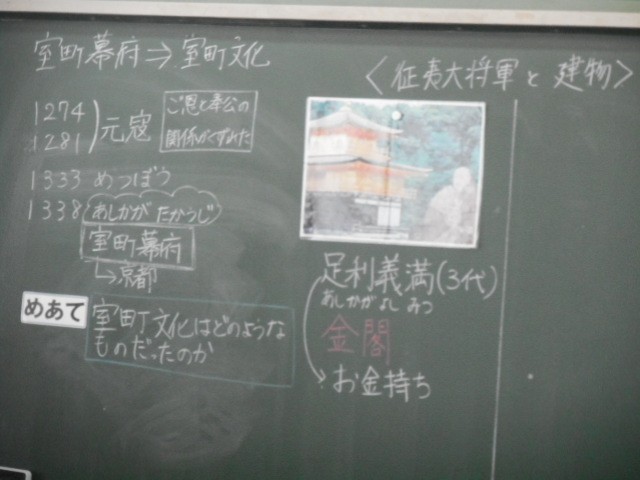 室町幕府⇒室町文化
1274
1281
元寇
ご恩と奉公の
関係がくずれた
1333 めつぼう
1338 あしかが たかうじ
室町幕府
↳京都
めあて
室町文化はどのような
ものだったのか
〈征夷大将軍と建物〉
足利義満(3代)
あしかがよしみつ
金閣
お金持ち